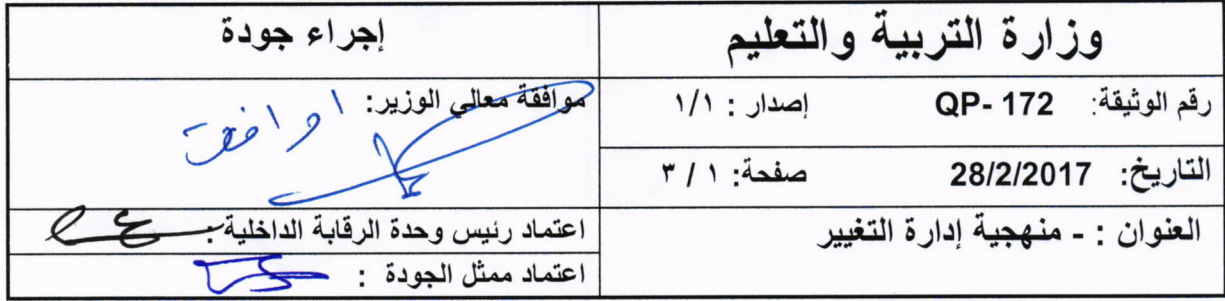 وزارة التربية والتعليم
إجراء جودة
رقم الوثيقة: QP- 172 إصدار : ١/١
موافقة معالي الوزير: اوافق
التاريخ: 28/2/2017 صفحة: ١ / ٣
العنوان : - منهجية إدارة التغيير
اعتماد رئيس وحدة الرقابة الداخلية :
اعتماد ممثل الجودة :